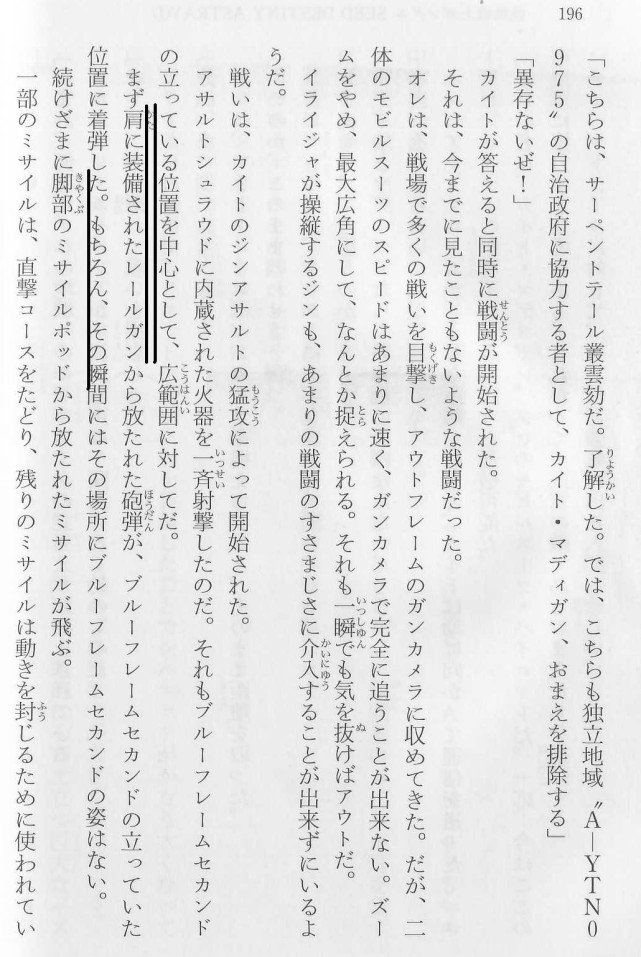 196
「こちらは、サーペントテール叢雲劾だ。了解した。では、こちらも独立地域〝A―YTN0
975〟の自治政府に協力する者として、カイト・マディガン、おまえを排除する」
「異存ないぜ！」
カイトが答えると同時に戦闘が開始された。
それは、今までに見たこともないような戦闘だった。
オレは、戦場で多くの戦いを目撃し、アウトフレームのガンカメラに収めてきた。だが、二
体のモビルスーツのスピードはあまりに速く、ガンカメラで完全に追うことが出来ない。ズー
ムをやめ、最大広角にして、なんとか捉えられる。それも一瞬でも気を抜けばアウトだ。
イライジャが操縦するジンも、あまりの戦闘のすさまじさに介入することが出来ずにいるよ
うだ。
戦いは、カイトのジンアサルトの猛攻によって開始された。
アサルトシュラウドに内蔵された火器を一斉射撃したのだ。それもブルーフレームセカンド
の立っている位置を中心として、広範囲に対してだ。
まず肩に装備されたレールガンから放たれた砲弾が、ブルーフレームセカンドの立っていた
位置に着弾した。もちろん、その瞬間にはその場所にブルーフレムセカンドの姿はない。
続けざまに脚部のミサイルポッドから放たれたミサイルが飛ぶ。
一部のミサイルは、直撃コースをたどり、残りのミサイルは動きを封じるために使われてい